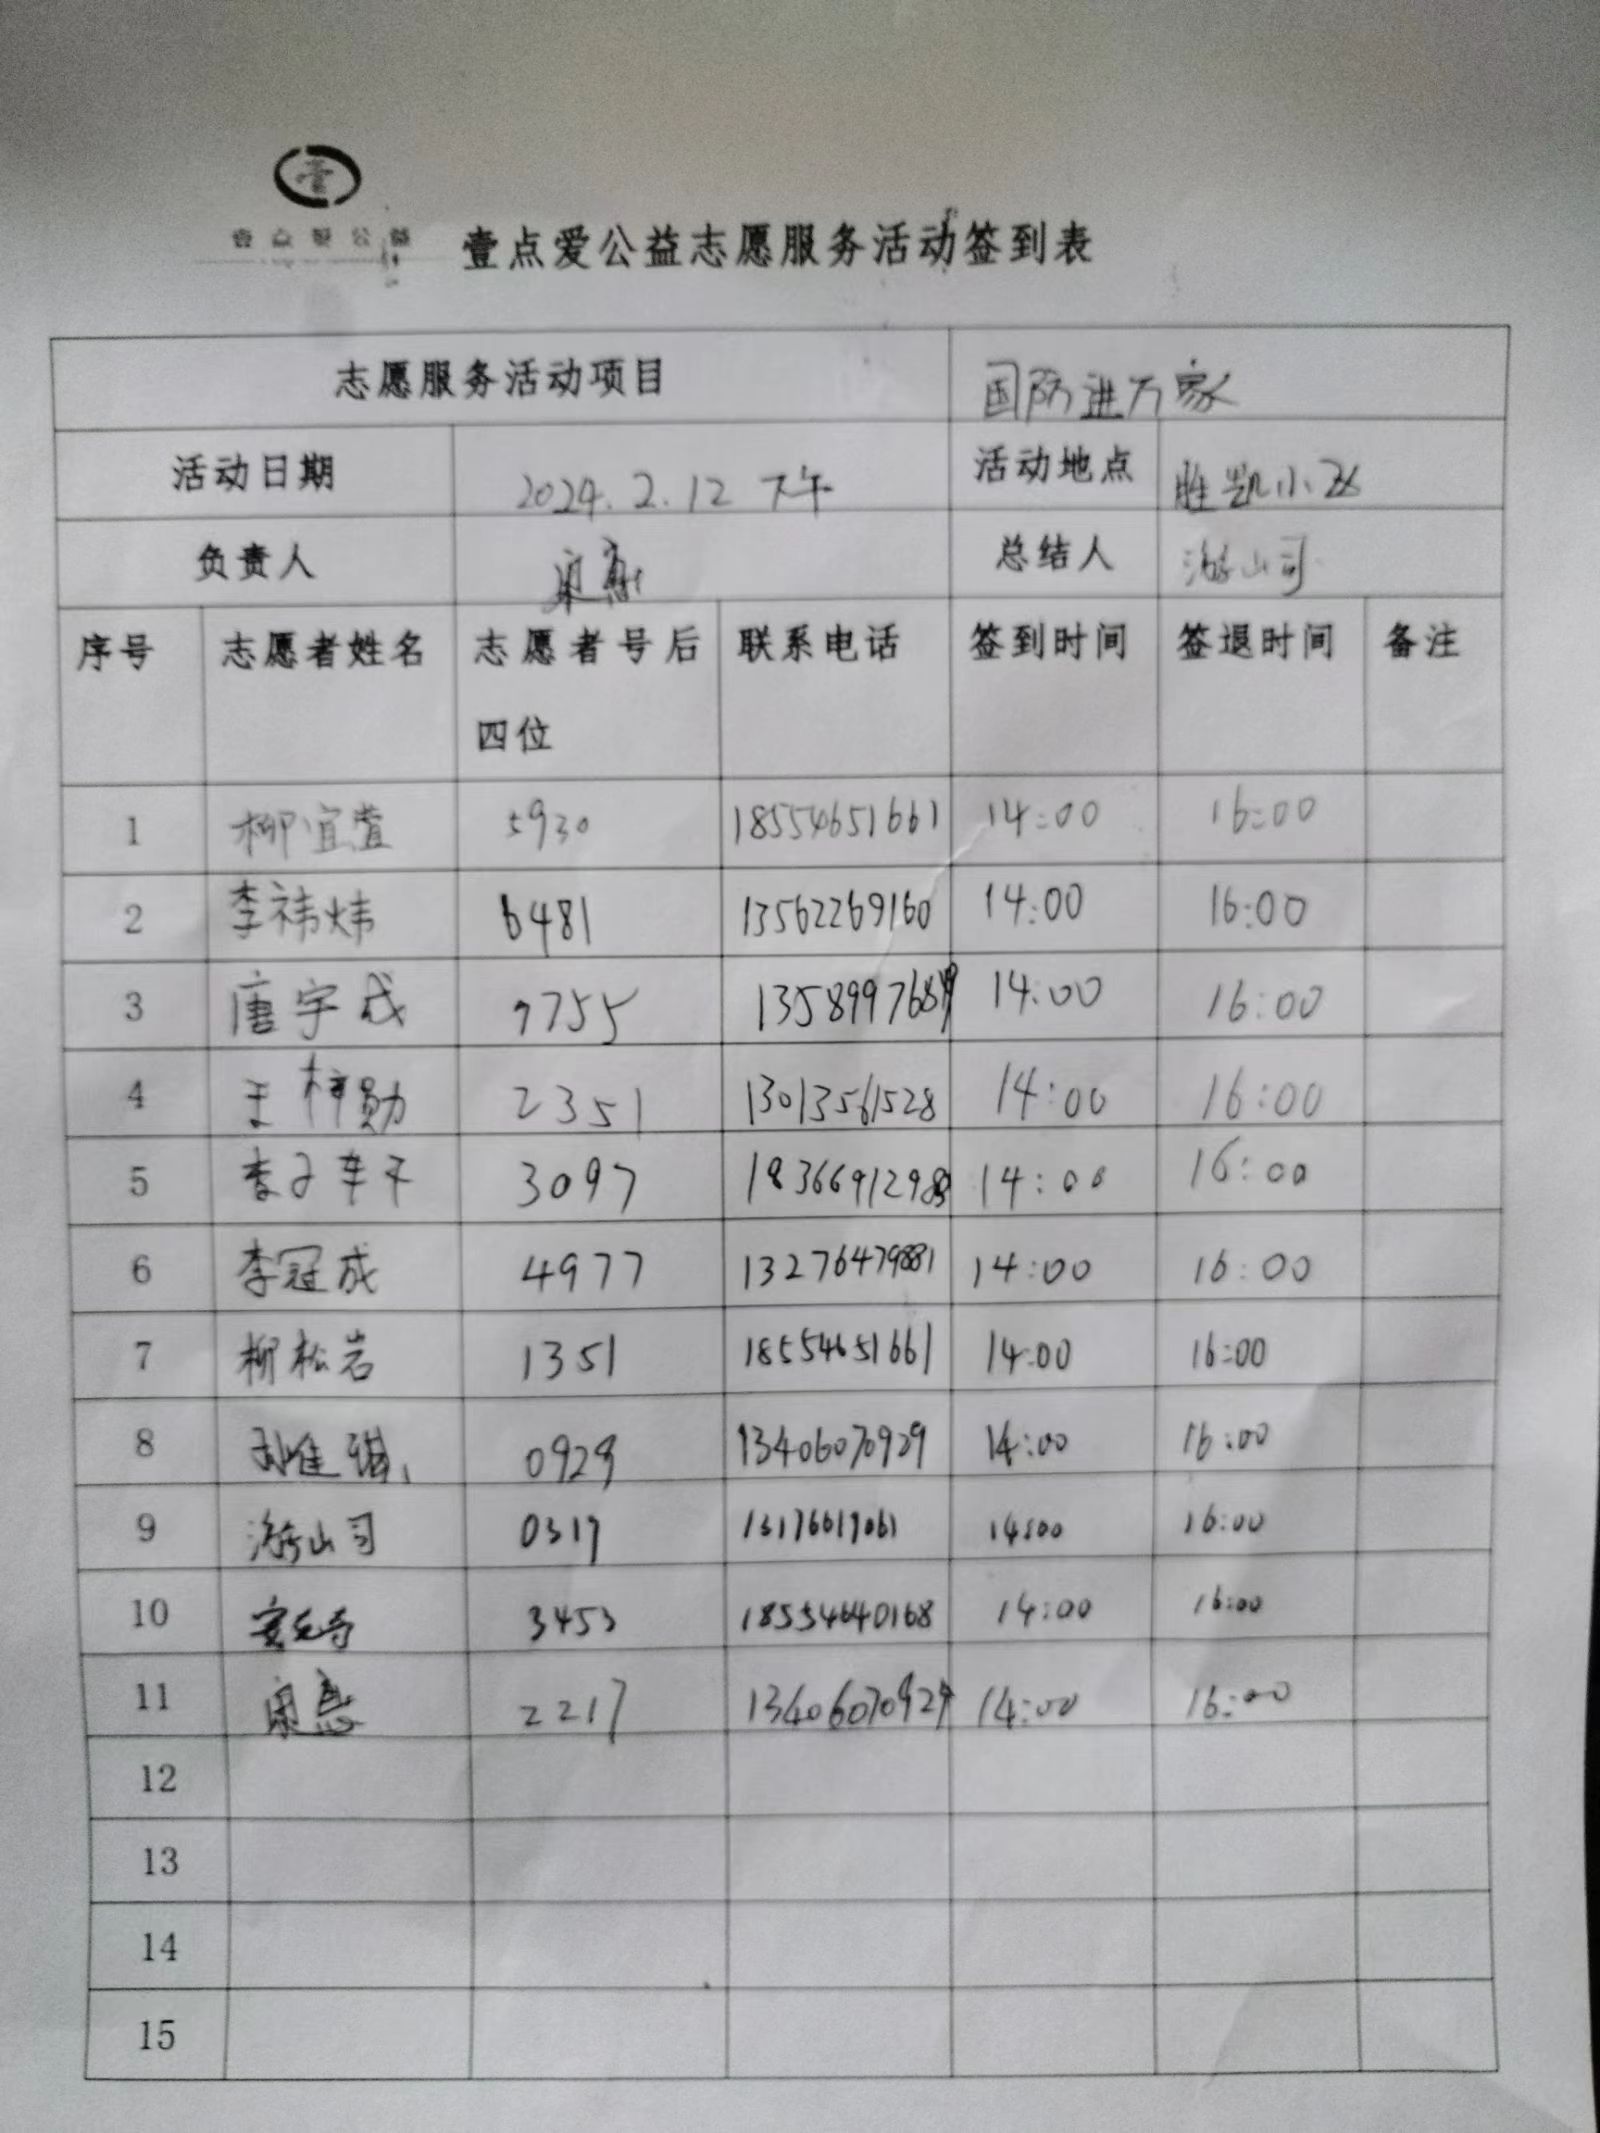 壹
壹点爱公益
壹点爱公益志愿服务活动签到表
志愿服务活动项目 国防进万家
活动日期 2024.2.12 下午 活动地点 胜凯小区
负责人 总结人 游山司
序号 志愿者姓名 志愿者号后四位 联系电话 签到时间 签退时间 备注
1 柳宜萱 5930 18554651661 14:00 16:00
2 李祎炜 6481 13562269160 14:00 16:00
3 唐宇成 7755 14:00 16:00
4 王梓勋 2351 13013561528 14:00 16:00
5 3097 14:00 16:00
6 李冠成 4977 13276479881 14:00 16:00
7 柳松岩 1351 18554651661 14:00 16:00
8 0929 13406070929 14:00 16:00
9 游山司 0317 13176617061 14:00 16:00
10 3453 18554640168 14:00 16:00
11 康惠 2217 13406070929 14:00 16:00
12
13
14
15